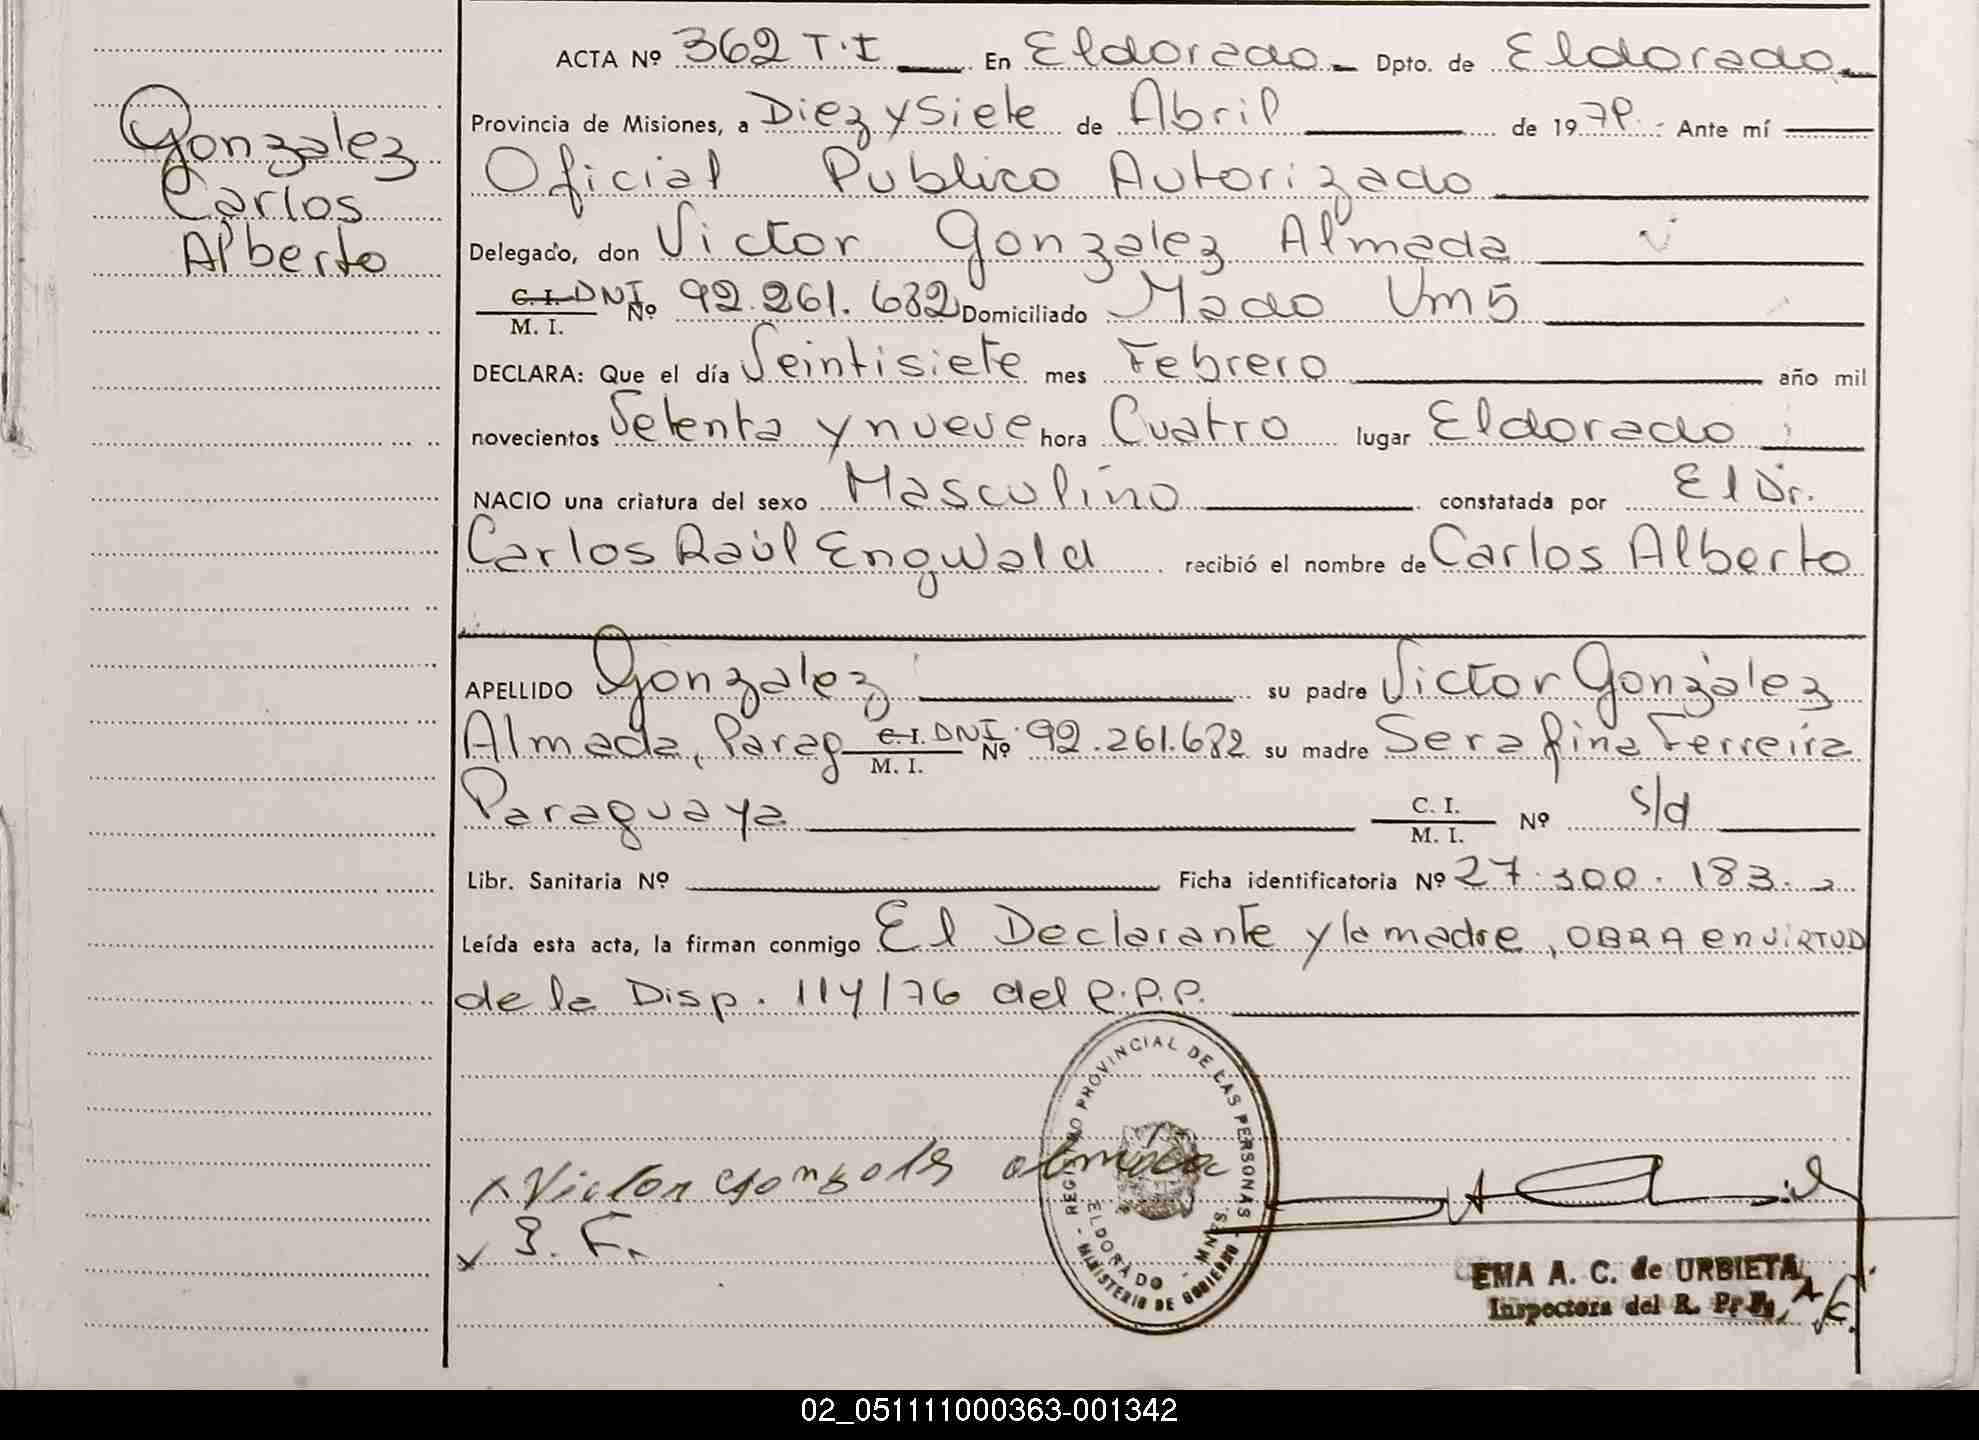 ACTA Nº 362 T.I En Eldorado Dpto. de Eldorado
Gonzalez
Carlos
Alberto
Provincia de Misiones, a Diez y Siete de Abril de 1979. Ante mí
Oficial Publico Autorizado
Delegado, don Victor Gonzalez Almada
C. I. DNI Nº 92.261.682 Domiciliado Mado Km5
M. I.
DECLARA: Que el día Veintisiete mes Febrero año mil
novecientos Setenta y nueve hora Cuatro lugar Eldorado
NACIO una criatura del sexo Masculino constatada por El Dr.
Carlos Raúl Engwald recibió el nombre de Carlos Alberto
APELLIDO Gonzalez su padre Victor Gonzalez
Almada, Parag C. I. DNI. Nº 92.261.682 su madre Serafina Ferreira
M. I.
Paraguaya C. I. Nº s/d
M. I.
Libr. Sanitaria Nº Ficha identificatoria Nº 27.300.183.
Leída esta acta, la firman conmigo El Declarante y la madre, OBRA en viRTUD
de la Disp. 114/76 del R.P.P.
REGISTRO PROVINCIAL DE LAS PERSONAS
ELDORADO - MNES.
- MINISTERIO DE GOBIERNO -
x Victor Gonzales almada
x S. F.
EMA A. C. de URBIETA
Inspectora del R. P. P.
02_051111000363-001342